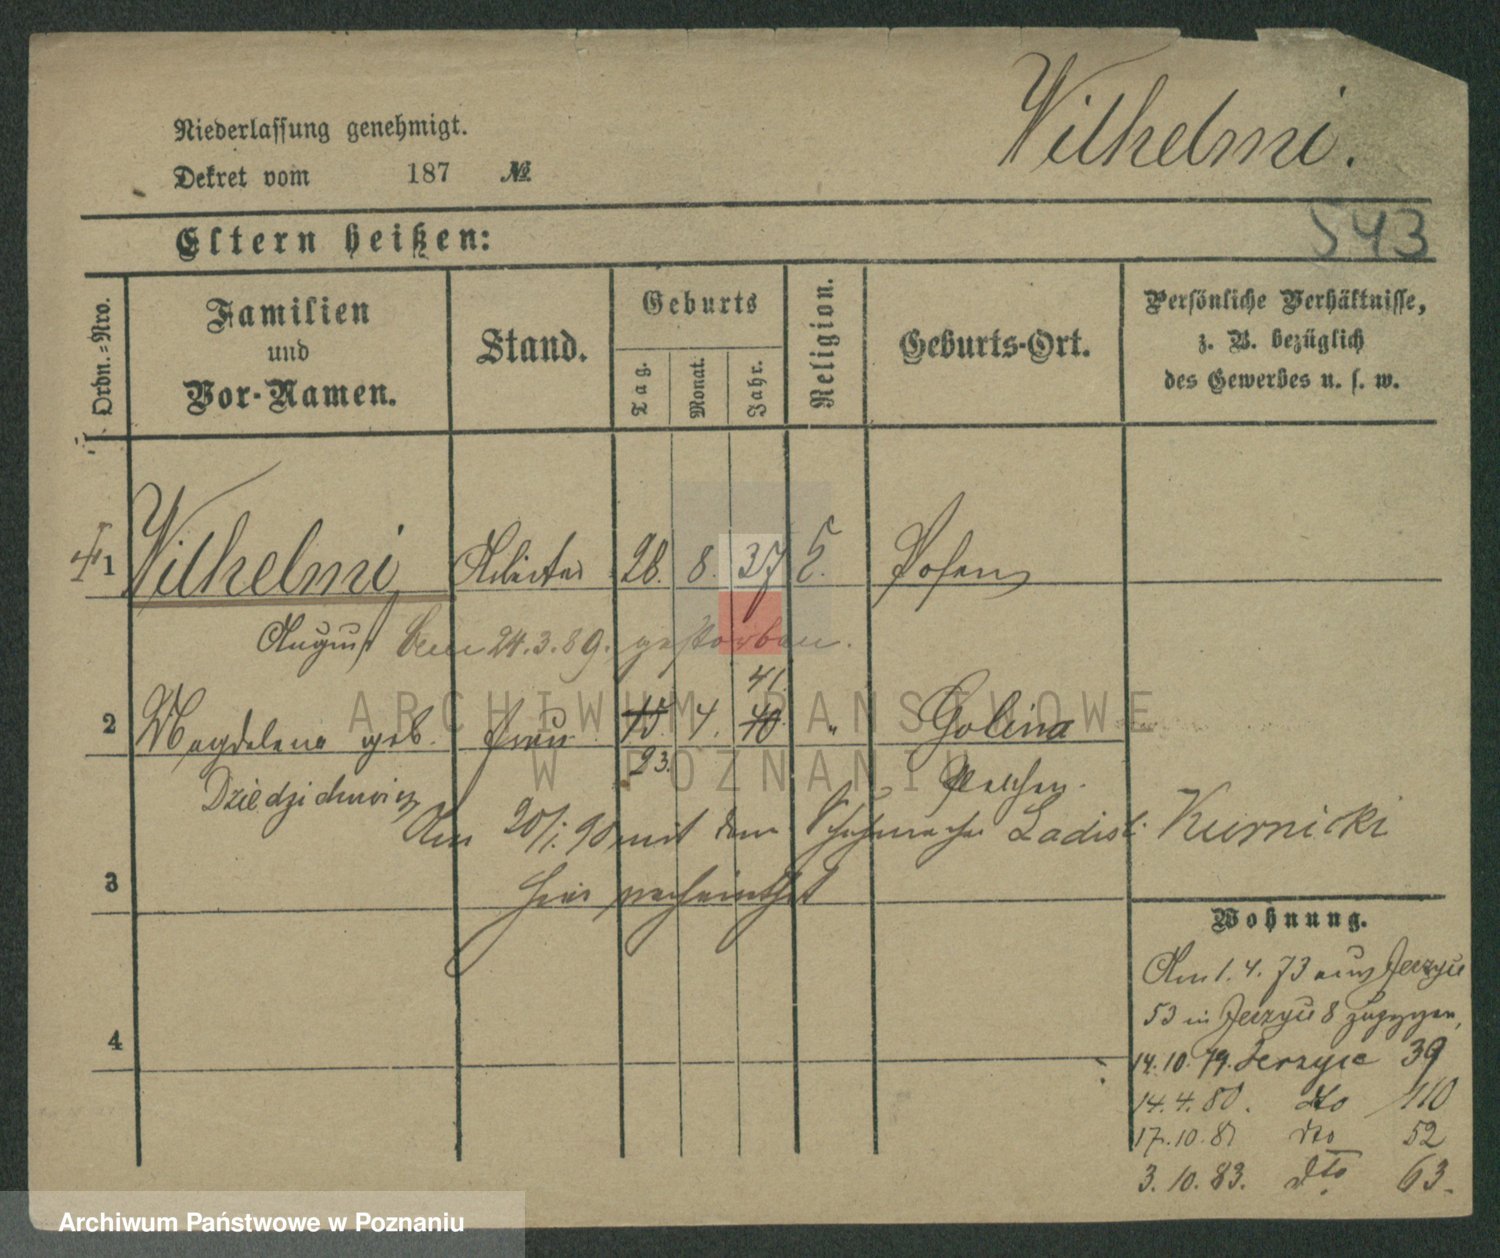 Wilhelmi.
Niederlassung genehmigt.
Dekret vom 187 №
543
Eltern heißen:
Ordn.=Nro.
Familien und Vor-Namen.
Stand.
Geburts
Tag. Monat. Jahr.
Religion.
Geburts-Ort.
Persönliche Verhältnisse,
z. B. bezüglich
des Gewerbes u. s. w.
1 Wilhelmi 28. 8. 37 Posen
August den 24.3.89. gestorben.
41.
2 Magdalena geb. Frau 15 4. 40 " Golina
23.
Am 20/1. 90 mit dem Schuhmacher Ladisl. Kurnicki
3 hier verheirathet
Wohnung.
Am 1. 4. 73 aus Jerzyce
53 in Jerzyce 8 zugezogen,
4
14.10.79. Jerzyce 39
14.4.80. dto 110
17.10.81 dto 52
3.10.83. dto. 63.
ARCHIWUM PAŃSTWOWE
W POZNANIU
Archiwum Państwowe w Poznaniu